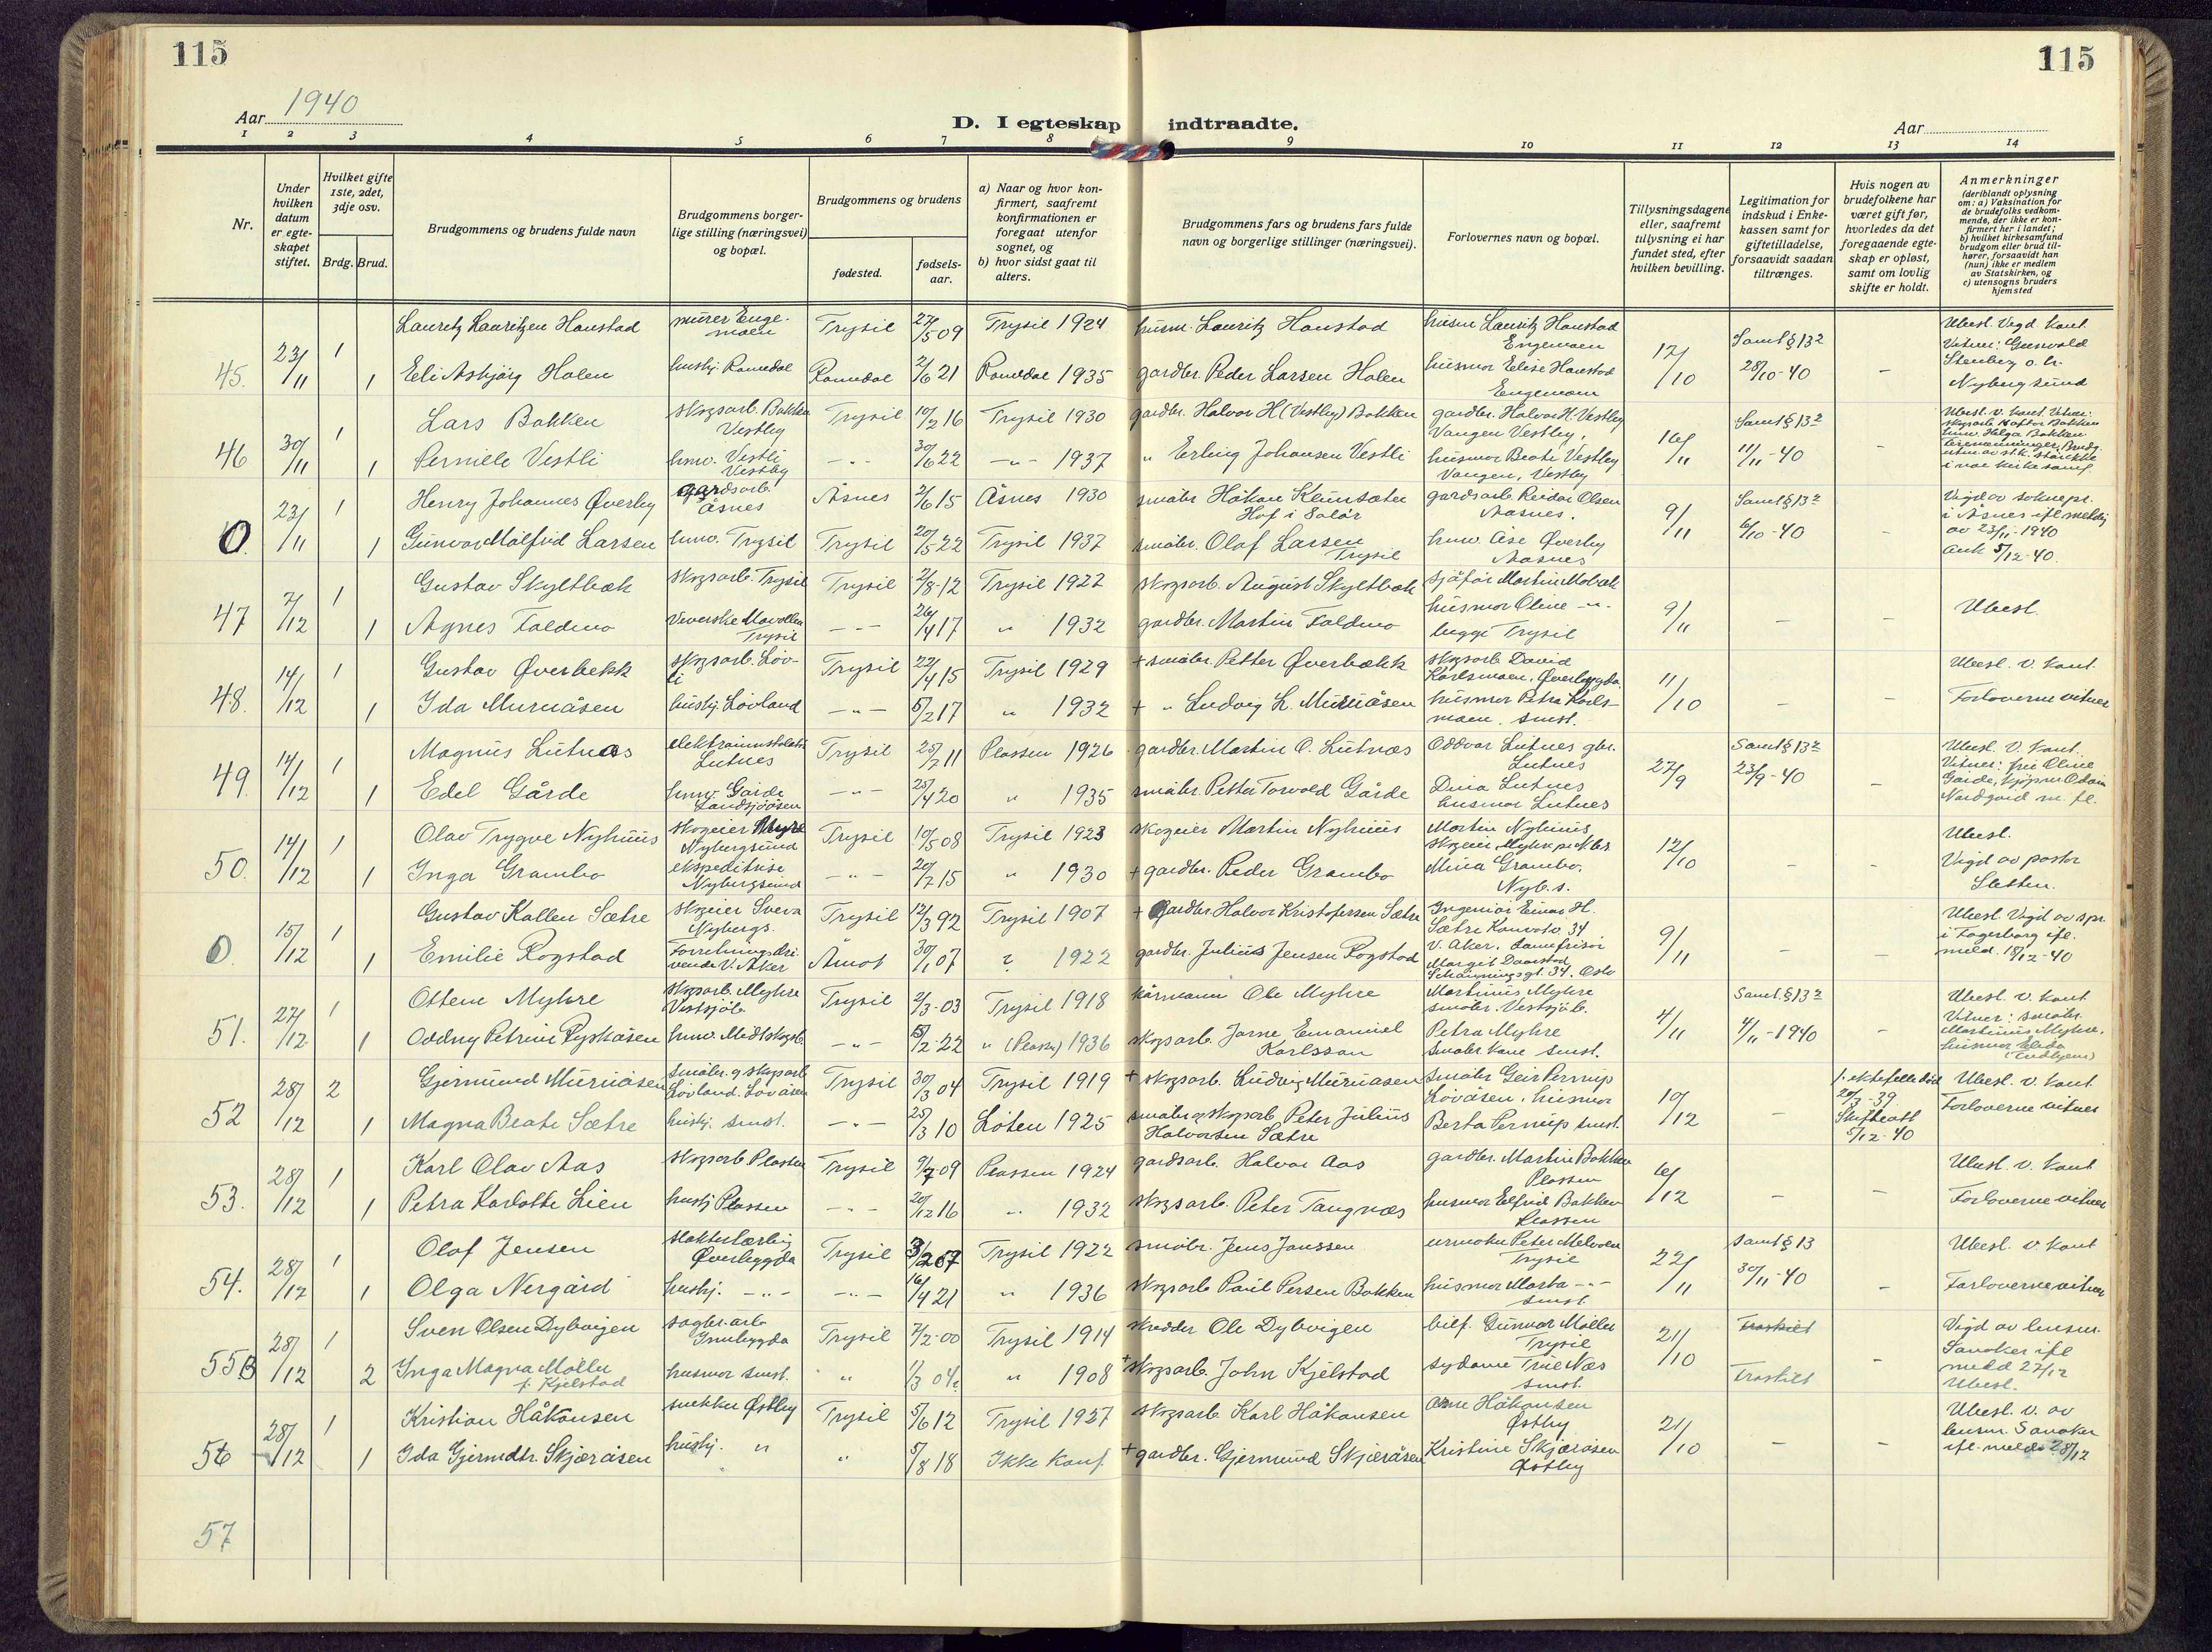 115
115
Aar 1940
D. I egteskap indtraadte.
Aar
1 2 3 4 5 6 7 8 9 10 11 12 13 14
Nr.
Under hvilken datum er egteskapet stiftet.
Hvilket gifte 1ste, 2det, 3dje osv.
Brdg. Brud.
Brudgommens og brudens fulde navn
Brudgommens borgerlige stilling (næringsvei) og bopæl.
Brudgommens og brudens
fødested.
fødselsaar.
a) Naar og hvor konfirmert, saafremt konfirmationen er foregaat utenfor sognet, og
b) hvor sidst gaat til alters.
Brudgommens fars og brudens fars fulde navn og borgerlige stillinger (næringsvei).
Forlovernes navn og bopæl.
Tillysningsdagene eller, saafremt tillysning ei har fundet sted, efter hvilken bevilling.
Legitimation for indskud i Enkekassen samt for giftetilladelse, forsaavidt saadan tiltrænges.
Hvis nogen av brudefolkene har været gift før, hvorledes da det foregaaende egteskap er opløst, samt om lovlig skifte er holdt.
Anmerkninger
(deriblandt oplysning om: a) Vaksination for de brudefolks vedkommende, der ikke er konfirmert her i landet;
b) hvilket kirkesamfund brudgom eller brud tilhører, forsaavidt han (hun) ikke er medlem av Statskirken, og
c) utensogns bruders hjemsted
45. 23/11 1 Lauritz Lauritzen Hanstad murer Engemoen Trysil 27/5 09 Trysil 1924 husm. Lauritz Hanstad husm Lauritz Hanstad Engemoen 12/10 Samt § 13² 28/10-40 - Ubesl. Vegd kont. Vitner: Gunvald Stenberg o. hr. Nybergsund
1 Eli Asbjørg Holen hushj. Romedal Romedal 2/6 21 Romedal 1935 gardbr. Peder Larsen Holen husmor Elise Hanstad Engemoen
46 30/11 1 Lars Bakken skogsarb. Bakken Vestby Trysil 10/2 16 Trysil 1930 gardbr. Halvor H (Vestby) Bakken gardbr. Halvor H. Vestby Vangen Vestby, 16/11 Samt § 13² 11/11-40 Ubesl. v. kont. Vitner: skogsarb. Bakken hmv. Helga Bakken
1 Pernille Vestli hmv. Vestli Vestby -"- 30/6 22 -"- 1937 " Erling Johansen Vestli husmor Beate Vestby Vangen, Vestby
0. 23/11 1 Henry Johannes Øverby gardsarb. Åsnes Åsnes 2/6 15 Åsnes 1930 småbr Håkon Hof i Solør gardsarb. Reidar Olsen Aasnes. 9/11 Samt § 13² 6/10-40 - Vigd av soknepr. i Åsnes ifl. meldg av 23/11-1940 ank 5/12-40.
1 Gunvor Målfrid Larsen hmv. Trysil Trysil 20/5 22 Trysil 1937 småbr. Olaf Larsen Trysil hmv. Åse Øverby Aasnes
47 7/12 1 Gustav Skyltbæk skogsarb. Trysil Trysil 2/8-12 Trysil 1927 skogsarb. August Skyltbæk sjåfør Martin Mobæk 9/11 - - Ubesl.
1 Agnes Faldmo Veverske Trysil -"- 26/4 17 " 1932 gardbr. Martin Faldmo husmor Oline -"- begge Trysil
48. 14/12 1 Gustav Øverbekk skogsarb. Lövli Trysil 22/4 15 Trysil 1929 + småbr. Petter Øverbækk skogsarb David Karlsmoen, Øverbygda 11/10 - - Ubesl. v. kont.
1 Ida Muruåsen hushj. Lövland -"- 5/2 17 " 1932 + " Ludvig L. Muruåsen husmor Petra Karlsmoen. smst. Forloverne vitner
49. 14/12 1 Magnus Lutnæs Lutnes Trysil 25/7 11 Plassen 1926 gardbr. Martin O. Lutnæs Oddvar Lutnes gbr. Lutnes 27/9 Samt § 13² 23/9-40 - Ubesl. v. kont. Vitner: fru Oline Gårde, Nordgård m. fl.
1 Edel Gårde hmv. Gårde Landsjöåsen -"- 25/4 20 " 1935 småbr. Petter Torvald Gårde Dina Lutnes husmor Lutnes
50. 14/12 1 Olav Trygve Nyhuus skogeier Nybergsund Trysil 10/5 08 Trysil 1923 skogeier Martin Nyhuus Martin Nyhuus skogeier, 12/10 - - Ubesl. Vigd av pastor Sletten.
1 Inga Grambo ekspeditrise Nybergsund -"- 20/7 15 " 1930 + gardbr. Peder Grambo Mina Grambo. Nyb.s.
0. 15/12 1 Gustav Kallen Sætre skogeier Nybergs. Trysil 12/3 92 Trysil 1907 + gardbr. Halvor Kristofersen Sætre Ingeniør Einar H. Sætre 34 V. Aker. Damefrisør 9/11 - - Ubesl Vigd av spr. i Fagerborg ifl. meld. 18/12-40
1 Emilie Rogstad Forretningsdrivende V. Aker Åmot 30/1 07 ? 1922 gardbr. Julius Jensen Rogstad Margit 34. Oslo
51. 27/12 1 Ottem Myhre skogsarb. Myhre Vestsjöb. Trysil 2/3-03 Trysil 1918 Ole Myhre Martinus Myhre småbr. Vestsjöb. 4/11 Samt. § 13² 4/11-1940 - Ubesl. v. kont. Vitner: småbr. Martinus Myhre, husmor
1 Oddny Petrine Ryskåsen hmv. Midtskogb. -"- 5/2-22 " (Plassen) 1936 skogsarb. Jarne Emanuel Karlsson Petra Myhre småbr. kone smst.
52 28/12 2 Gjermund Muruåsen småbr. og skogsarb Lövland. Lövåsen Trysil 30/3 04 Trysil 1919 + skogsarb. Ludvig Muruåsen småbr Geir Pernup Lövåsen. husmor 10/12 - 1. ektefelle död 20/3-39. Skifteatt 5/12-40 Ubesl. v. kont
1 Magna Beate Sætre hushj. smst. -"- 25/3 10 Löten 1925 småbr. og skogsarb Peter Julius Halvorsen Sætre Berta Pernup smst. Forloverne vitner
53. 28/12 1 Karl Olav Aas skogsarb Plassen Trysil 9/7 09 Plassen 1924 gardsarb. Halvor Aas gardbr. Martin Bakken Plassen 6/12 - - Ubesl. v. kont
1 Petra Karlotte Lien hushj Plassen -"- 20/12 16 " 1932 skogsarb. Peter Tangnæs husmor Elfrid Bakken Plassen Forloverne vitner
54. 28/12 1 Olaf Jensen Øverbyggda Trysil 3/2 07 Trysil 1922 småbr. Jens Janssen urmaker Peter Melvoen Trysil 22/11 Samt § 13 30/11-40 - Ubesl. v kont
1 Olga Nergård hushj. -"- -"- 16/4 21 " 1936 skogsarb Paul Persen Bakken husmor Marta -"- smst. Forloverne vitner
55B 28/12 1 Sven Olsen Dybvigen sagbr. arb Innbyggda Trysil 7/2-00 Trysil 1914 skredder Ole Dybvigen bilf. Gunvar Möller Trysil 21/10 Fraskilt - Vigd av lensm. Sanaker ifl meld 27/12 Ubesl.
2 Inga Magna Möller f. Kjelstad husmor smst. " 1/3 04 " 1908 + skogsarb. John Kjelstad sydame Trine Næs smst. Fraskilt
56 28/12 1 Kristian Håkansen snekker Østby Trysil 5/6 12 Trysil 1927 skogsarb Karl Håkansen Arne Håkansen Østby 21/10 - - Ubesl. v. av lensm. Sanaker ifl. meld. 28/12
1 Ida Gjermdtr. Skjæråsen hushj. " " 5/8 18 Ikke konf. + gardbr. Gjermund Skjæråsen Kristine Skjæråsen Østby
57